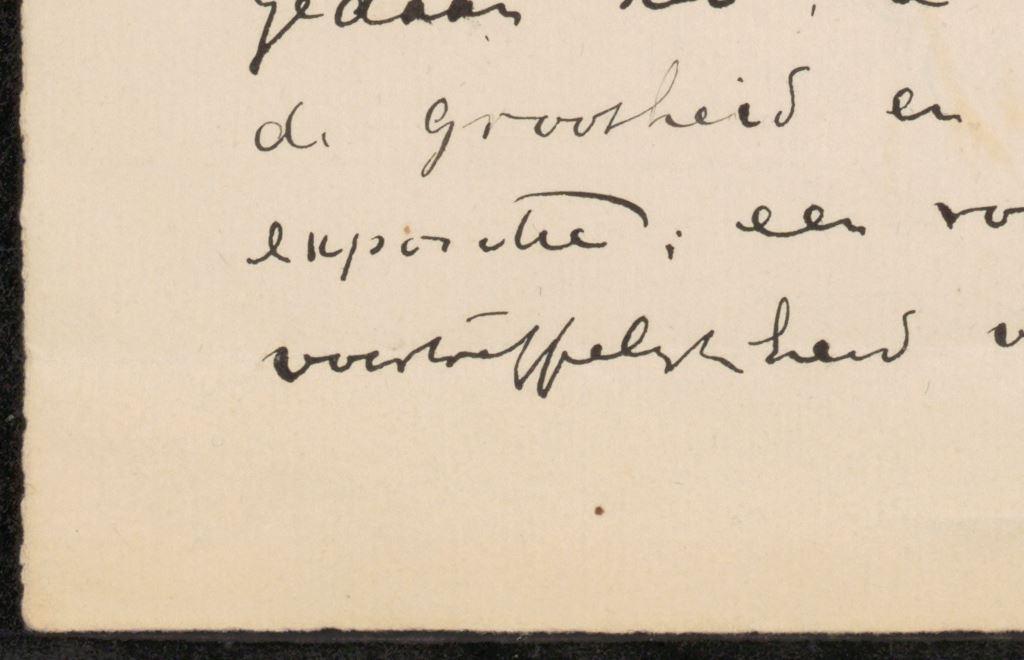 gedaan
de grootheid en
expositie; een
voortreffelijkheid